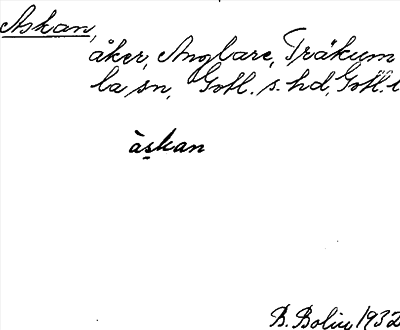 Askan,
åker, Anglare, Träkum
la sn, Gotl. s. hd, Gotl. l
àskan
B. Bolin, 1932